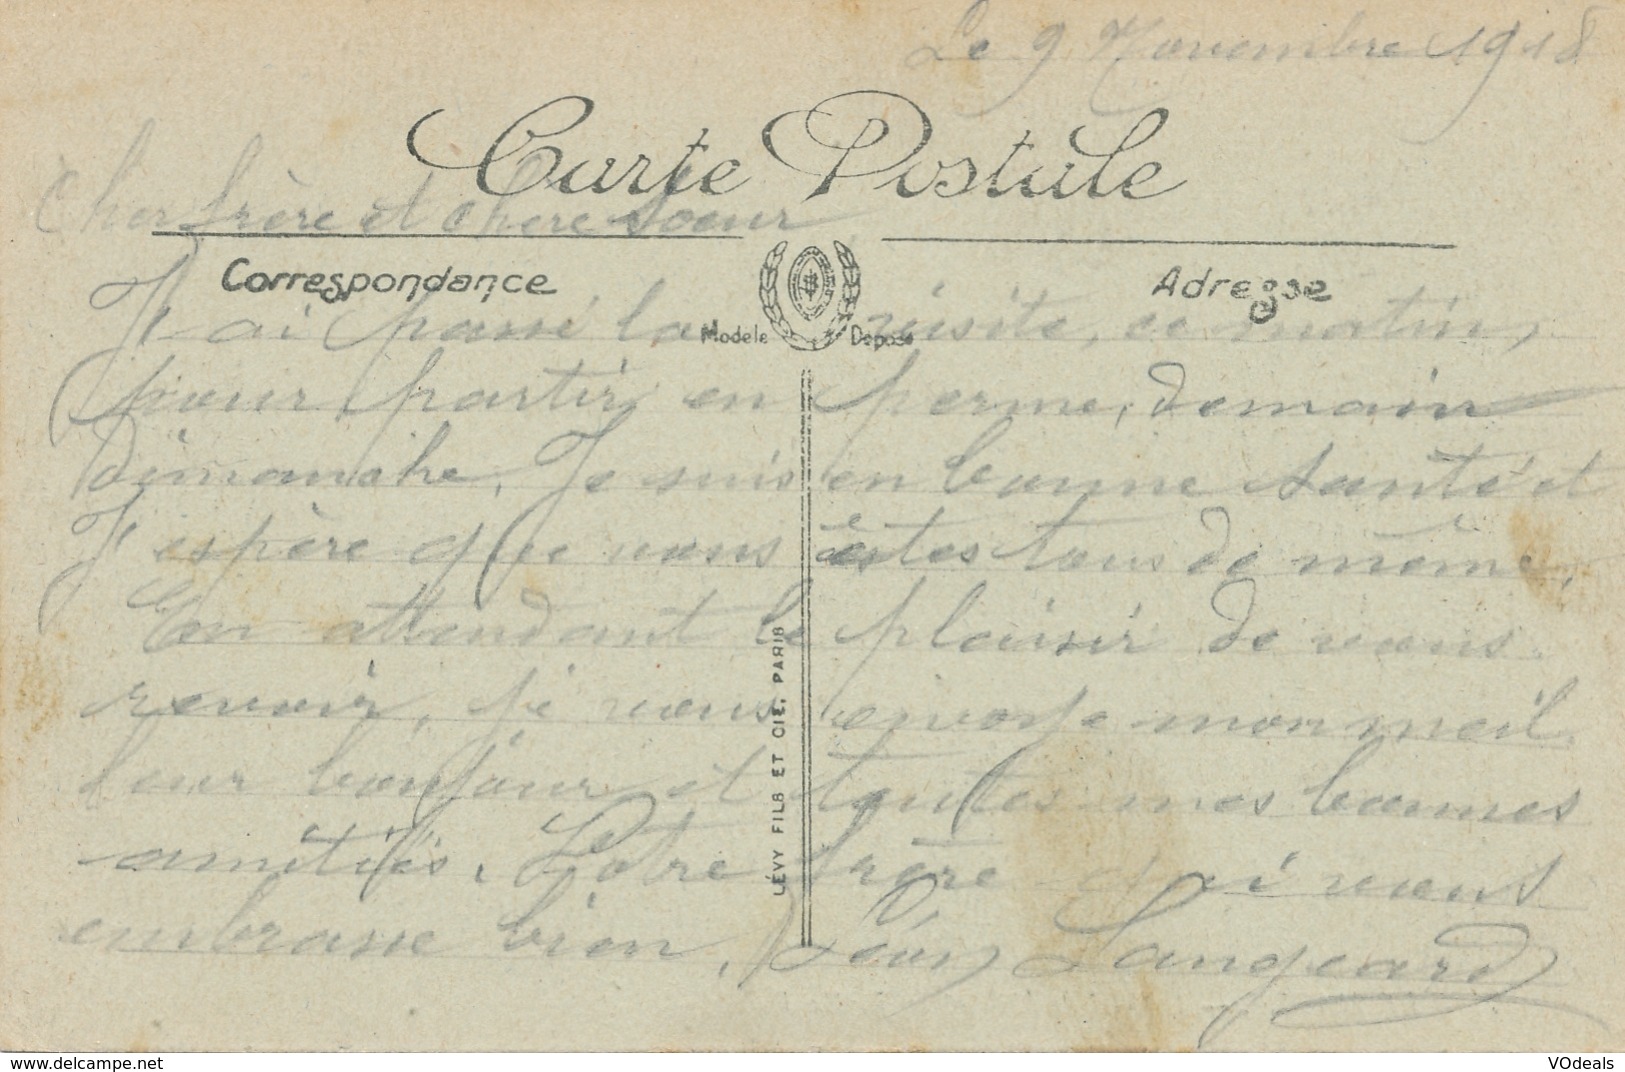 Le 9 Novembre 1918
Carte Postale
Cher frère et chère Soeur
Correspondance
Adresse
J'ai passé la visite, ce matin,
Modele Déposé
pour partir en perme, demain
dimanche. Je suis en bonne santé et
J'espère que vous êtes tous de même.
En attendant le plaisir de vous
revoir, je vous envoye mon meil
leur bonjour et toutes mes bonnes
amitiés. Votre frère qui vous
embrasse bien. Léon Langeard
LÉVY FILS ET CIE, PARIS
www.delcampe.net
VOdeals